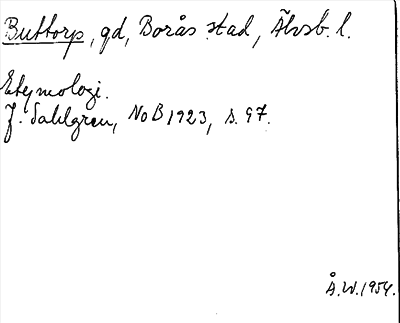 Buttorp, gd, Borås stad, Älvsb. l.
Etymologi.
J. Sahlgren, NoB 1923, s. 97.
Å.W. 1954.